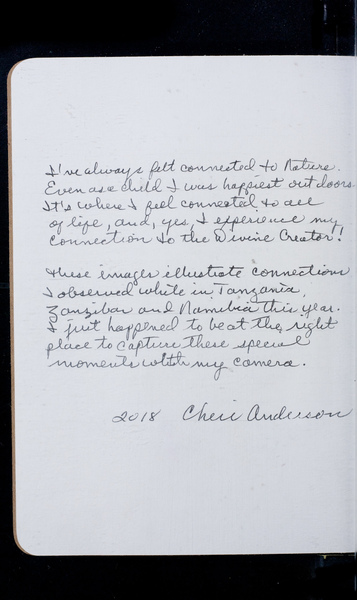 I've always felt connected to Nature.
Even as a child I was happiest outdoors.
It's where I feel connected to all
of life, and, yes, I experience my
connection to the Divine Creator!
These images illustrate connections
I observed while in Tanzania,
Zanzibar and Namibia this year.
I just happened to be at the right
place to capture these special
moments with my camera.
2018 Cheri Anderson